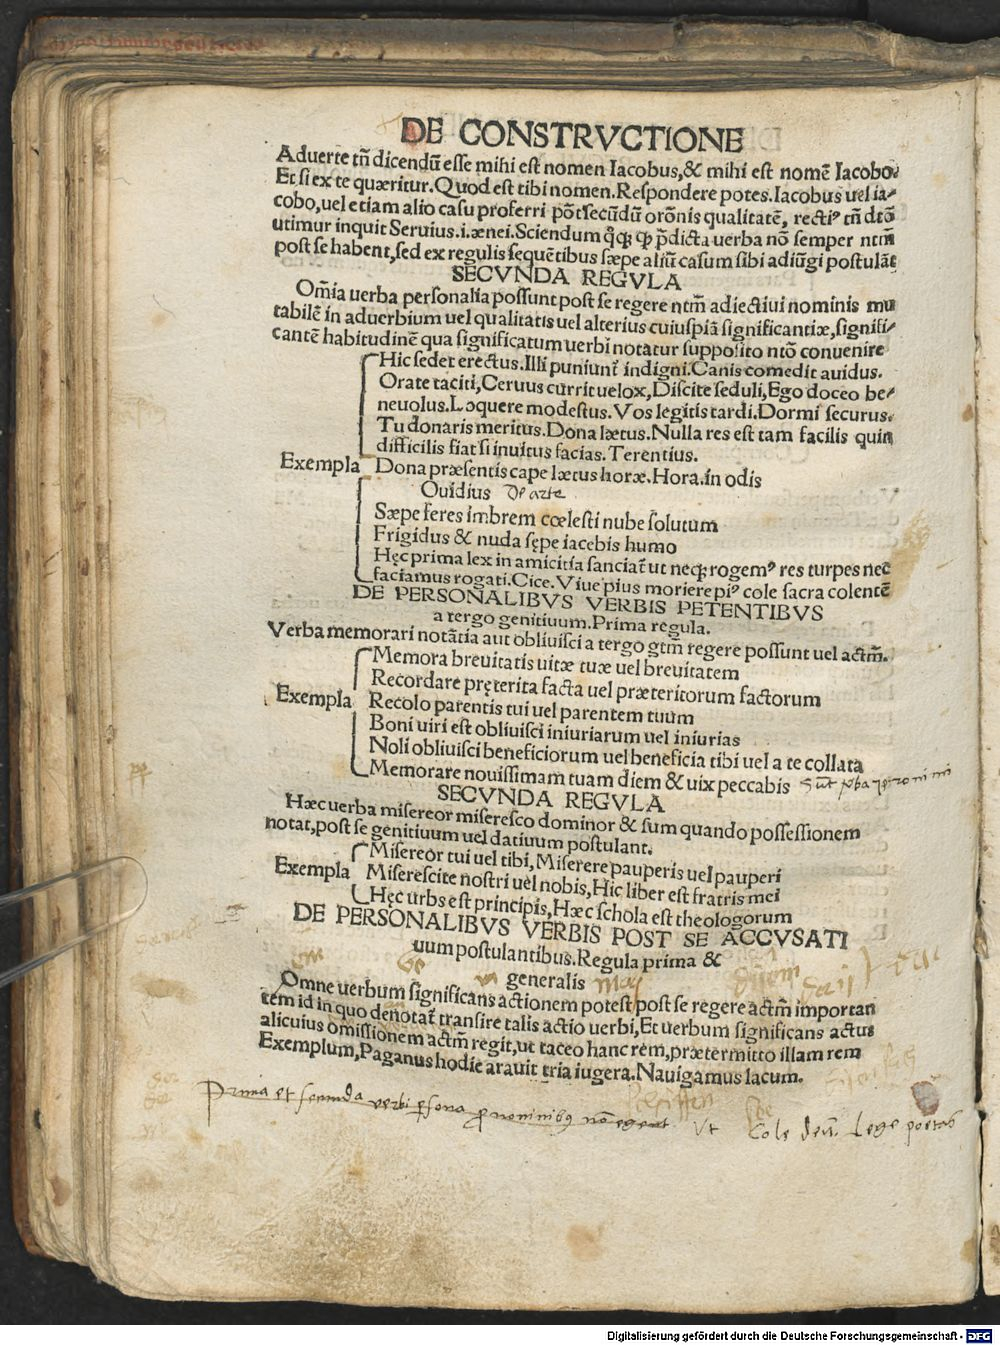 DE CONSTRVCTIONE
Aduerte tñ dicendũ esse mihi est nomen Iacobus,& mihi est nomẽ Iacobo.
Et si ex te quæritur.Quod est tibi nomen.Respondere potes.Iacobus uel ia-
cobo,uel etiam alio casu proferri põt secũdũ orõnis qualitatẽ, rectiꝰ tñ dtõ
utimur inquit Seruius.i.ænei.Sciendum ꝙ̃ꝗ ꝙ p̃dicta uerba nõ semper ntm̃
post se habent,sed ex regulis sequẽtibus sæpe aliũ casum sibi adiũgi postulãt
SECVNDA REGVLA
Om̃ia uerba personalia possunt post se regere ntm̃ adiectiui nominis mu
tabilẽ in aduerbium uel qualitatis uel alterius cuiuspiã significantiæ,signifi-
cantẽ habitudinẽ qua significatum uerbi notatur supposito ntõ conuenire
Hic sedet erectus.Illi puniunt̃ indigni.Canis comedit auidus.
Orate taciti,Ceruus currit uelox,Discite seduli,Ego doceo be-
neuolus.Loquere modestus.Vos legitis tardi.Dormi securus.
Tu donaris meritus.Dona lætus.Nulla res est tam facilis quin
difficilis fiat si inuitus facias.Terentius.
Exempla Dona præsentis cape lætus horæ.Hora.in odis
Ouidius De arte
Sæpe feres imbrem cœlesti nube solutum
Frigidus & nuda sępe iacebis humo
Hęc prima lex in amicitia sanciat̃ ut neqꝫ rogemꝰ res turpes nec
faciamus rogati.Cice.Viue pius moriere piꝰ cole sacra colentẽ
DE PERSONALIBVS VERBIS PETENTIBVS
a tergo genitiuum.Prima regula.
Verba memorari notãtia aut obliuisci a tergo gtm̃ regere possunt uel actm̃.
Memora breuitatis uitæ tuæ uel breuitatem
Recordare pręterita facta uel præteritorum factorum
Exempla Recolo parentis tui uel parentem tuum
Boni uiri est obliuisci iniuriarum uel iniurias
Noli obliuisci beneficiorum uel beneficia tibi uel a te collata
Memorare nouissimam tuam diem & uix peccabis
SECVNDA REGVLA
Hæc uerba misereor miseresco dominor & sum quando possessionem
notat,post se genitiuum uel datiuum postulant.
Misereor tui uel tibi,Miserere pauperis uel pauperi
Exempla Miserescite nostri uel nobis,Hic liber est fratris mei
Hęc urbs est principis,Hæc schola est theologorum
DE PERSONALIBVS VERBIS POST SE ACCVSATI
uum postulantibus.Regula prima &
generalis
Omne uerbum significans actionem potest post se regere actm̃ importan
tem id in quo denotat̃ transire talis actio uerbi,Et uerbum significans actus
alicuius omissionem actm̃ regit,ut taceo hanc rem,prætermitto illam rem
Exemplum,Paganus hodie arauit tria iugera.Nauigamus lacum.
Prima et secunda verbi p̱sona p̱nominibꝰ nõ egent Vt Cole deũ. Lege poetas
Digitalisierung gefördert durch die Deutsche Forschungsgemeinschaft - DFG